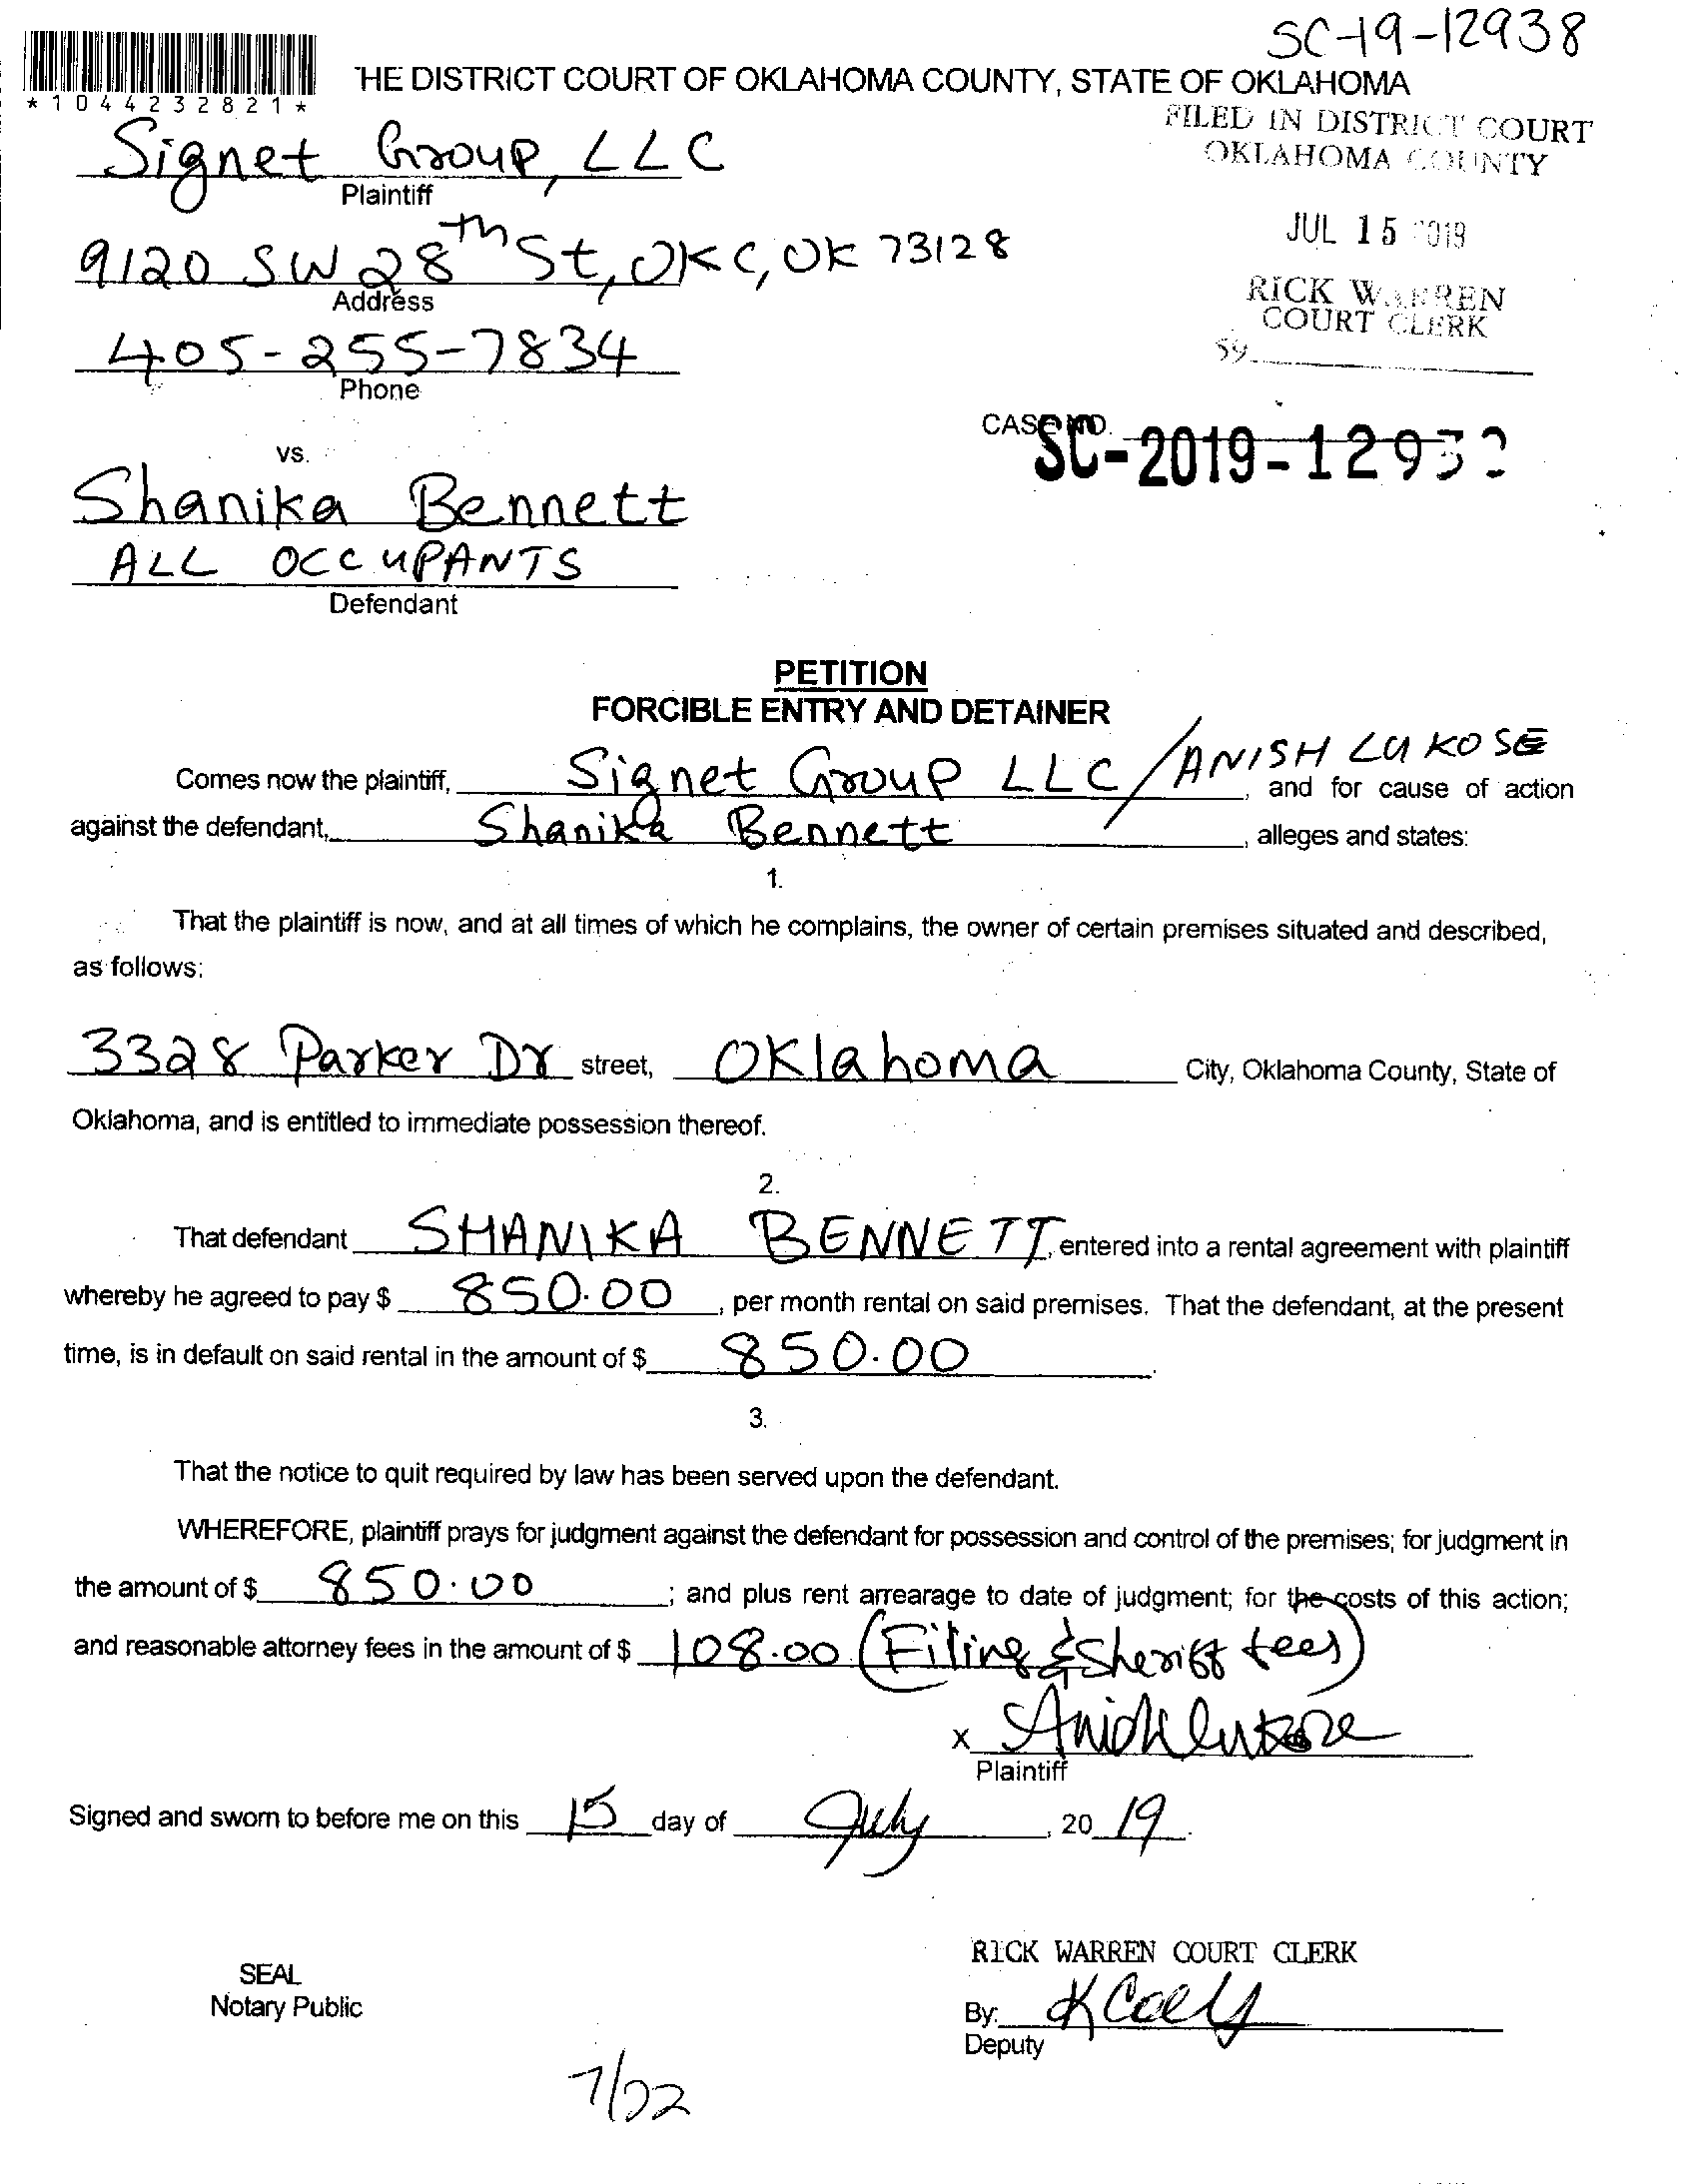 SC-19-12938
*1044232821*
THE DISTRICT COURT OF OKLAHOMA COUNTY, STATE OF OKLAHOMA
FILED IN DISTRICT COURT
OKLAHOMA COUNTY
Signet Group, LLC
Plaintiff
JUL 15 2019
9120 SW 28th St, OKC, OK 73128
Address
RICK WARREN
COURT CLERK
405-255-7834
Phone
CASE NO.
SC-2019-1293
vs.
Shanika Bennett
ALL OCCUPANTS
Defendant
PETITION
FORCIBLE ENTRY AND DETAINER
Comes now the plaintiff, Signet Group LLC/ANISH LUKOSE, and for cause of action
against the defendant, Shanika Bennett, alleges and states:
1.
That the plaintiff is now, and at all times of which he complains, the owner of certain premises situated and described,
as follows:
3328 Parker Dr street, Oklahoma City, Oklahoma County, State of
Oklahoma, and is entitled to immediate possession thereof.
2.
That defendant SHANIKA BENNETT, entered into a rental agreement with plaintiff
whereby he agreed to pay $ 850.00, per month rental on said premises. That the defendant, at the present
time, is in default on said rental in the amount of $ 850.00.
3.
That the notice to quit required by law has been served upon the defendant.
WHEREFORE, plaintiff prays for judgment against the defendant for possession and control of the premises; for judgment in
the amount of $ 850.00; and plus rent arrearage to date of judgment; for the costs of this action;
and reasonable attorney fees in the amount of $ 108.00 (Filing & Sheriff fees)
x Anish Lukose
Plaintiff
Signed and sworn to before me on this 15 day of July, 2019.
RICK WARREN COURT CLERK
SEAL
Notary Public
By:
Deputy
7/22